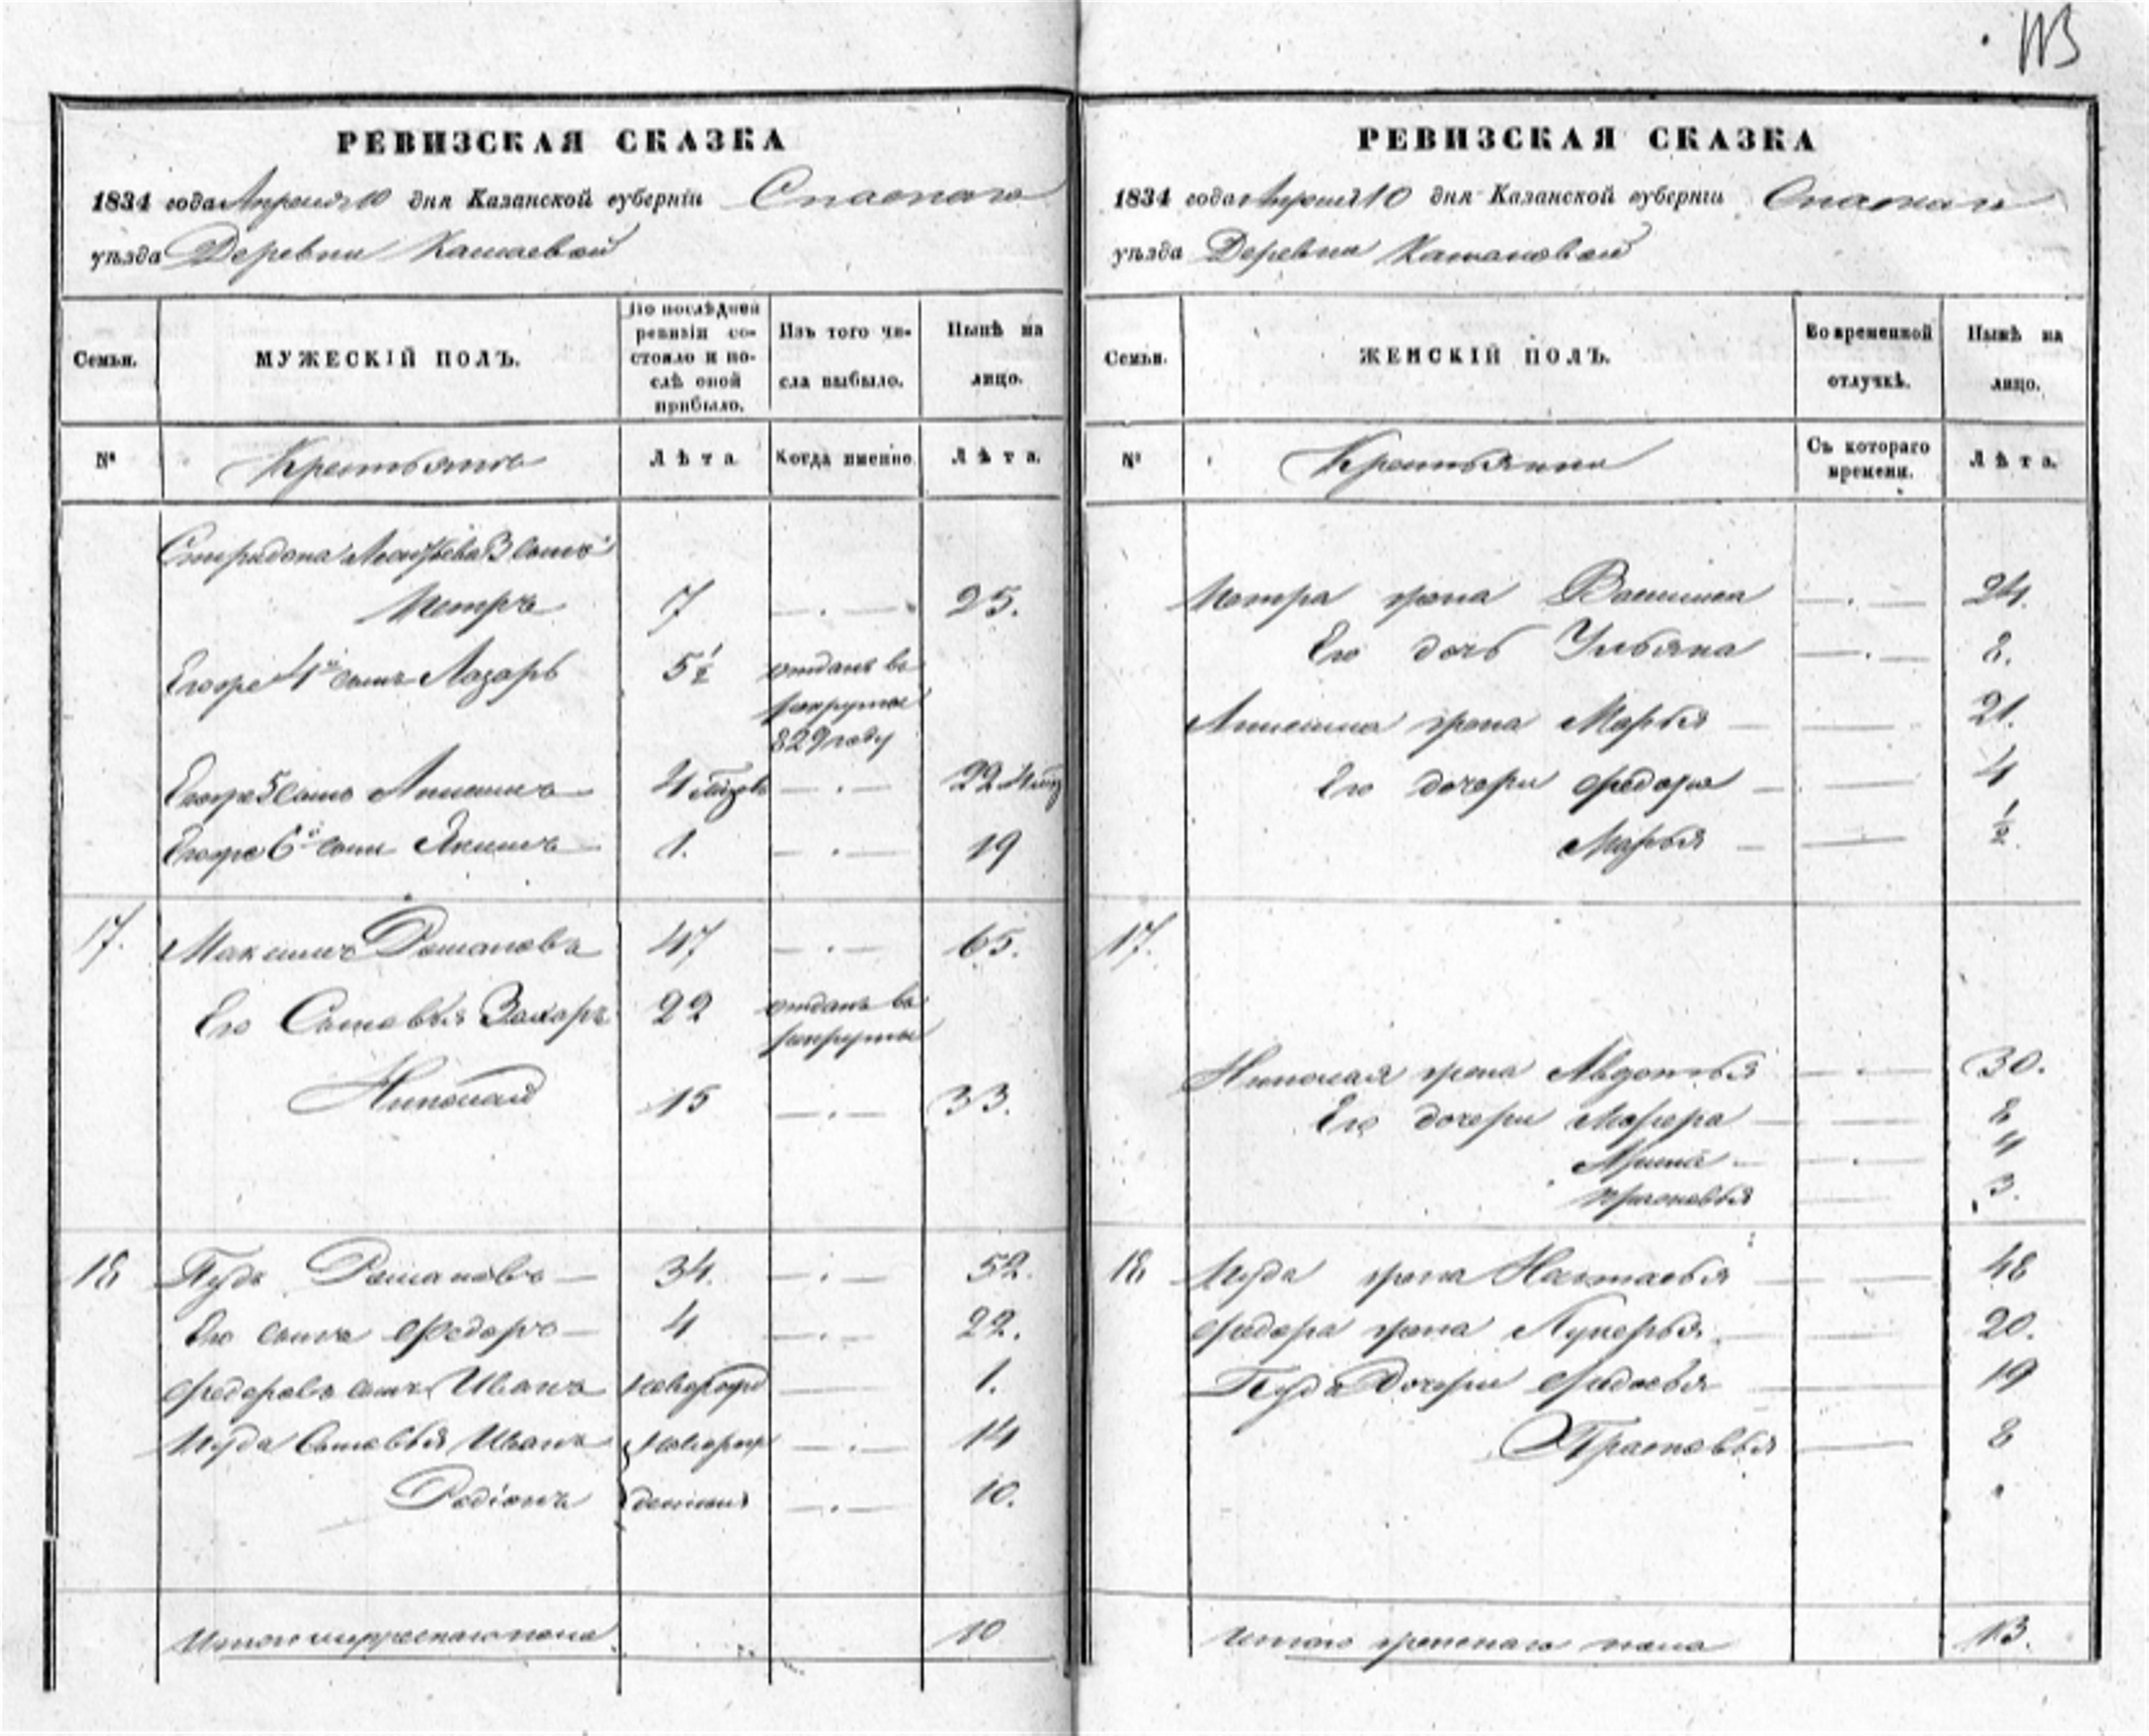 113
РЕВИЗСКАЯ СКАЗКА
1834 года Апреля 10 дня Казанской губерніи Спаскаго
уѣзда Деревни Кашаевой
Семьи. МУЖЕСКІЙ ПОЛЪ. По послѣдней ревизіи состояло и послѣ оной прибыло. Изъ того числа выбыло. Нынѣ на лицо.
№ Крестьянъ Лѣта Когда именно. Лѣта.
Спиридона 3 сынъ
Петръ 7 25.
Егоре 4й сынъ Лазарь 5 1/2 отданъ въ
рекруты
829 году
Егоре 5 сынъ Анисимъ 4 22
Егоре 6й сынъ Якимъ 1. 19
17. Максимъ Романовъ 47 65.
Его Сыновья Захаръ 22 отданъ въ
рекруты
Николай 15 33.
18 Пудъ Романовъ 34. 52.
Его сынъ Федоръ 4 22.
Федоровъ сынъ Иванъ новорож 1.
Пуда Сыновья Иванъ новорож 14
Родіонъ денныя 10.
Итого мужескаго пола 10
РЕВИЗСКАЯ СКАЗКА
1834 года Апреля 10 дня Казанской губерніи Спаскаго
уѣзда Деревни
Семьи. ЖЕНСКІЙ ПОЛЪ. Во временной отлучкѣ. Нынѣ на лицо.
№ Съ котораго времени. Лѣта.
Петра жена Василиса 24.
Его дочь Ульяна 8.
Анисима жена Марья 21.
Его дочери Федора 4
Марья 1/2.
17.
Николая жена Авдотья 30.
Его дочери 8
Арина 4
Прасковья 3.
18. Пуда жена Настасья 48
Федора жена Лукерья 20.
Пуда Дочери Федосья 19
Прасковья 8
Итого женскаго пола 13.